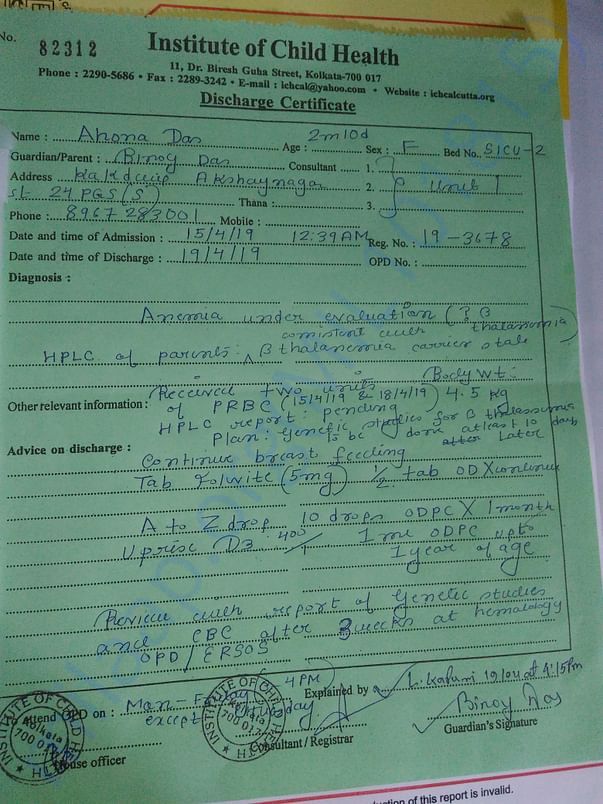 No. 82312
Institute of Child Health
11, Dr. Biresh Guha Street, Kolkata-700 017
Phone : 2290-5686 • Fax : 2289-3242 • E-mail : ichcal@yahoo.com • Website : ichcalcutta.org
Discharge Certificate
Name : Ahona Das Age : 2m10d Sex : F Bed No. SICU-2
Guardian/Parent : Binoy Das Consultant 1.
Address Kakdwip Akshaynagar 2. Unit I
24 PGS (S) Thana : 3.
Phone : 8967283001 Mobile :
Date and time of Admission : 15/4/19 12:39AM Reg. No. : 19-3678
Date and time of Discharge : 19/4/19 OPD No. :
Diagnosis :
Anemia under evaluation (? β thalassemia)
HPLC of parents: consistent with β thalanemia carrier state
Body wt:
Received two units 4.5 kg
Other relevant information : of PRBC (15/4/19 & 18/4/19)
HPLC report : pending
Plan: Genetic studies for β thalassemia
to be done atleast 10 days later
Advice on discharge :
Continue breast feeding
Tab Folvite (5mg) 1/2 tab OD X continue
A to Z drop 10 drops ODPC X 1 month
Uprise D3 400 1 ml ODPC upto
1 year of age
Review with report of Genetic studies
and CBC after 3 weeks at hematology
OPD /
4PM)
Attend OPD on : Mon-
except
Explained by 19/04 at 4:15pm
Binoy Das
Guardian's Signature
Consultant / Registrar
House officer
INSTITUTE OF CHILD HEALTH
Kolkata
700 017
INSTITUTE OF CHILD HEALTH
Kolkata
700 017
of this report is invalid.